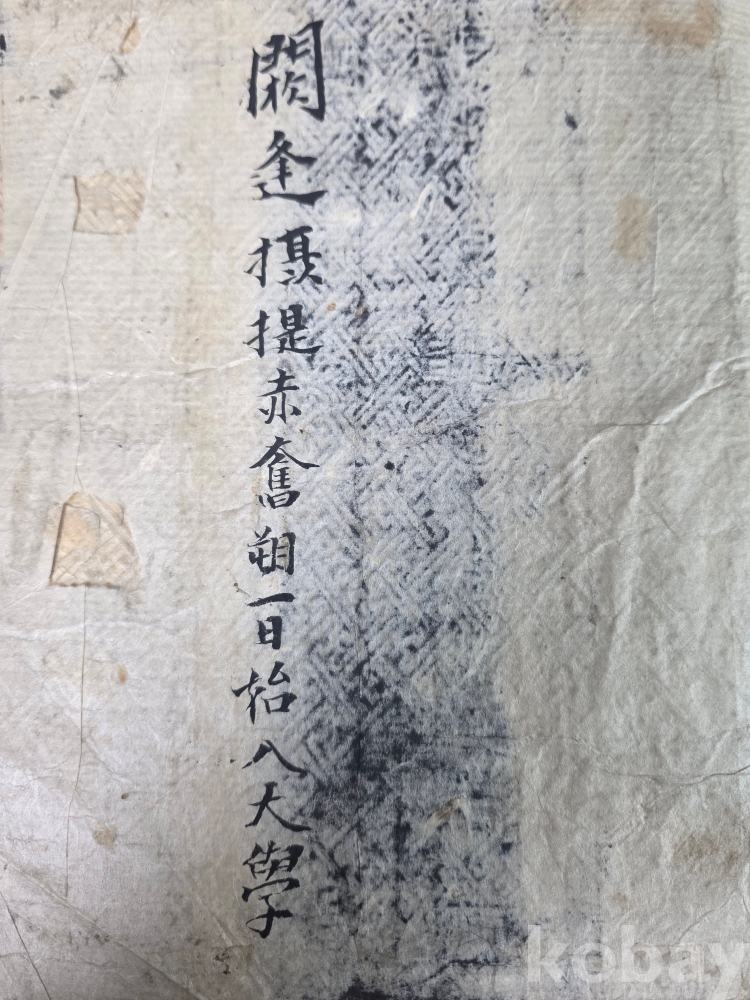 閼逢攝提赤奮朔一日始入大學
kobay